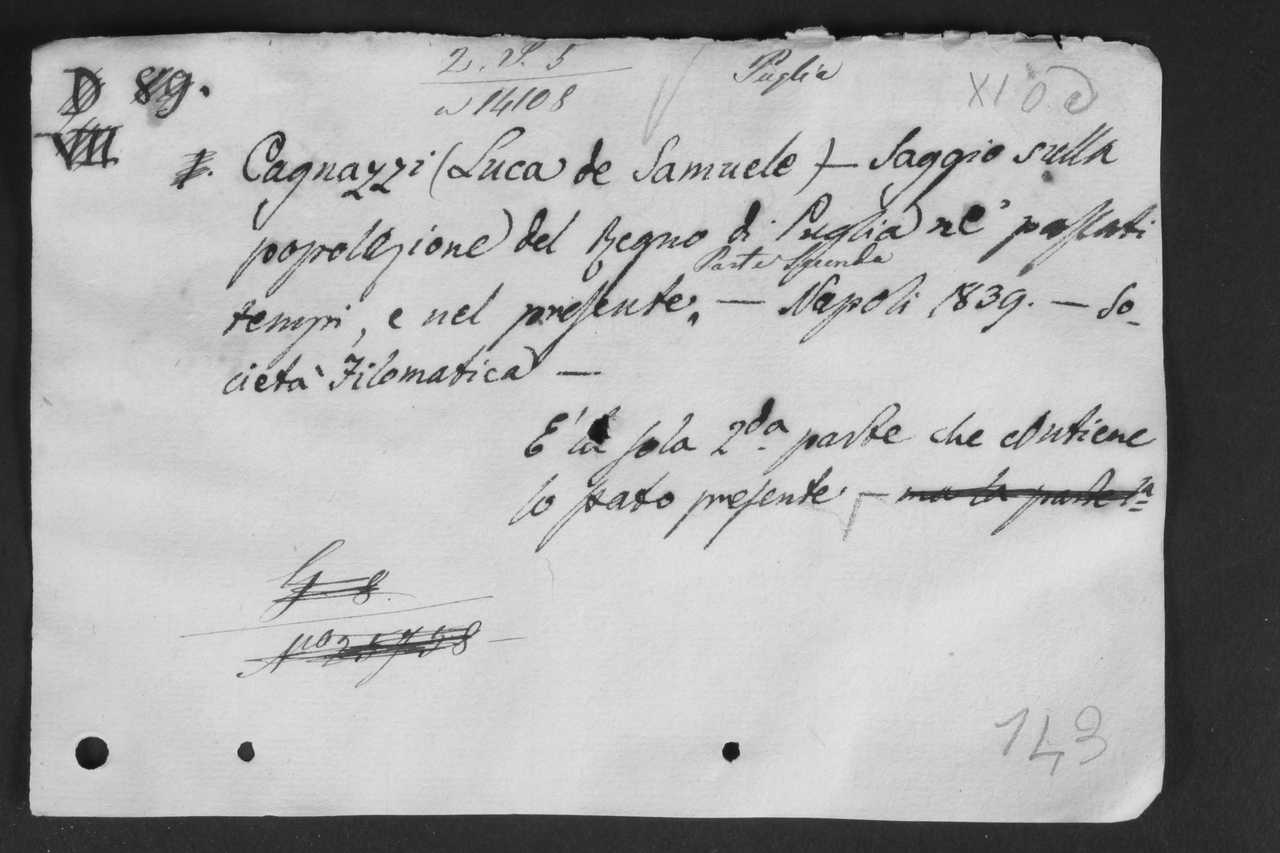 D 89.
2. P. 5
a 14108
Puglia
XI O. d
VIII
Cagnazzi (Luca de Samuele) — Saggio sulla
popolazione del Regno di Puglia ne' passati
Parte Seconda
tempi, e nel presente, — Napoli 1839. — So-
cietà Filomatica —
E' la sola 2da parte che contiene
lo stato presente, — ma la parte 1a
G 8.
No 25758
143